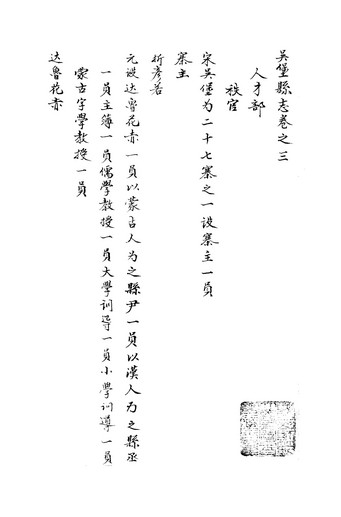 吴堡縣志卷之三
人才部
秩官
宋吴堡为二十七寨之一设寨主一員
寨主
折彦若
元设达鲁花赤一員以蒙古人为之縣尹一員以漢人为之縣丞
一員主簿一員儒學教授一員大學训导一員小學训導一員
蒙古字學教授一員
达鲁花赤